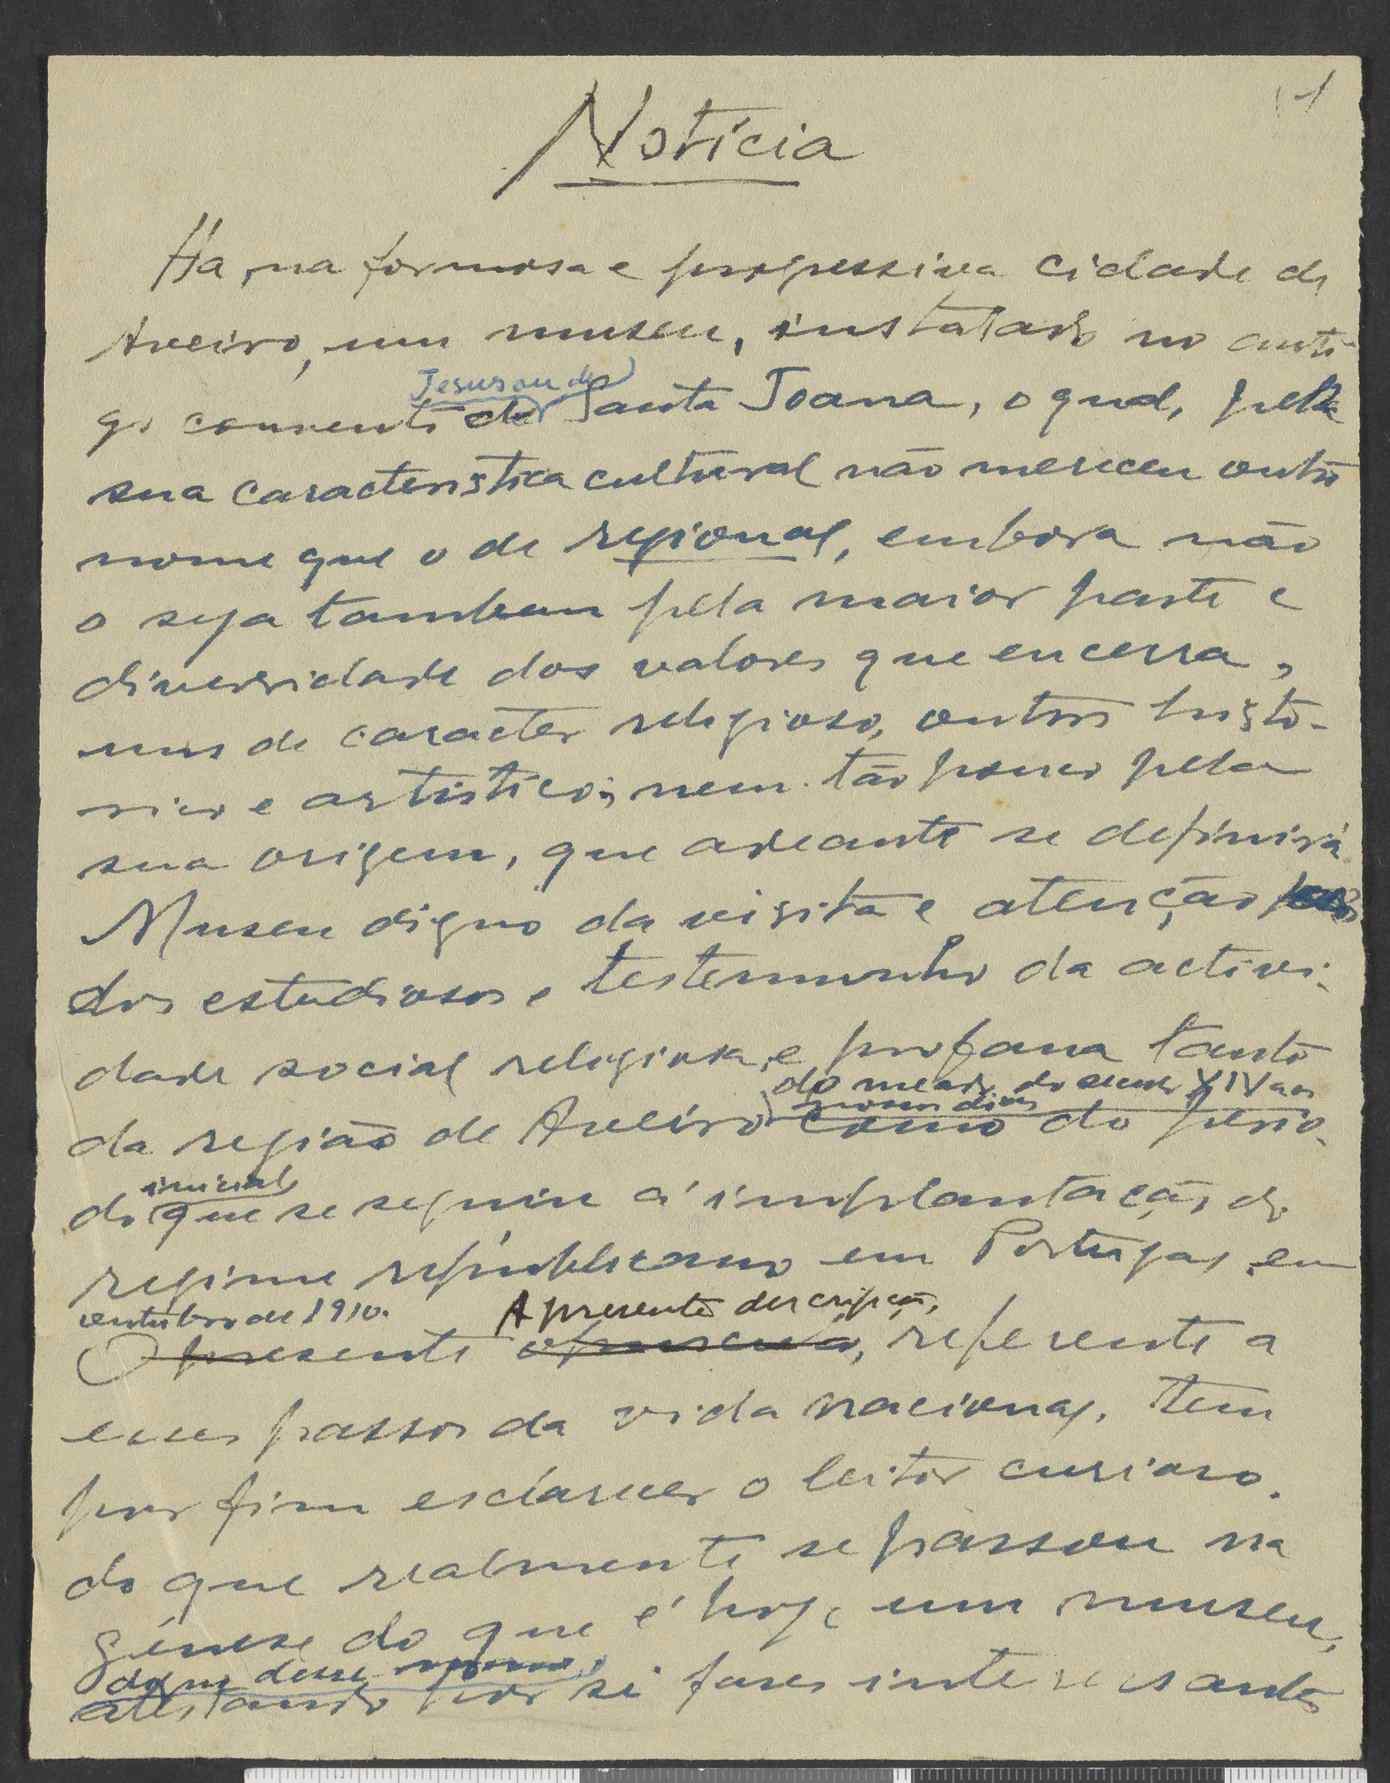 1
Notícia
Há, na formosa e progressiva cidade de
Aveiro, um museu, instalado no anti-
Jesus ou de
go convento de Santa Joana, o qual, pela
sua caracteristica cultural não mereceu outro
nome que o de regional, embora não
o seja tambem pela maior parte e
diversidade dos valores que encerra,
uns de caracter religioso, outros histo-
rico e artistico; nem tão pouco pela
sua origem, que adeante se definirá.
Museu digno da visita e atenção
dos estudiosos e testemunho da activi-
dade social religiosa e profana tanto
do meado do seculo XIV aos
nossos dias
da região de Aveiro como do perio-
inicial
do que se seguiu á implantação do
regime republicano em Portugal, em
outubro de 1910. A presente descripção,
O presente opusculo, referente a
esses passos da vida nacional, tem
por fim esclarecer o leitor curioso.
do que realmente se passou na
génese do que é hoje um museu,
desse
atestando por si fases interessantes